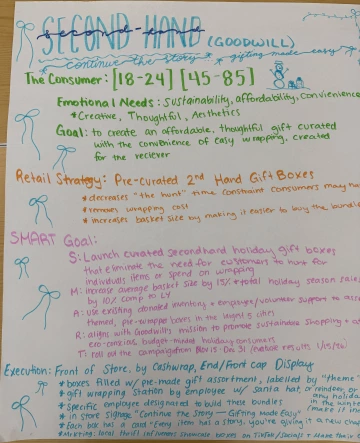 SECOND-HAND (GOODWILL)
continue the story * gifting made easy
The Consumer: [18-24] [45-85]
Emotional Needs: Sustainability, affordability, convienience
*Creative, Thoughtful, Aesthetics
Goal: to create an affordable, thoughtful gift curated
with the convenience of easy wrapping, created
for the reciever
Retail Strategy: Pre-curated 2nd Hand Gift Boxes
*decreases "the hunt" time constraint consumers may
*removes wrapping cost
*increases basket size by making it easier to buy the bundle
SMART Goal:
S: Launch curated secondhand holiday gift boxes
that eliminate the need for customers to hunt for
individual items or spend on wrapping
M: increase average basket size by 15% + total holiday season sales
by 10% comp to LY
A: use existing donated inventory + employee/volunteer support to
themed, pre-wrapped boxes in the
R: aligns with Goodwill's mission to promote sustainable shopping +
eco-conscious, budget-minded holiday consumers
T: roll out the campaign from Nov 15 - Dec 31
Execution: Front of Store, by Cashwrap, End/Front cap Display
*boxes filled w/ pre-made gift assortment, labelled by "theme"
*gift wrapping station by employee w/ Santa hat, or reindeer,
*specific employee designated to build these bundles
*in store signage "Continue the Story — Gifting Made Easy"
*Each box has a card "Every item has a story, you're giving it a new